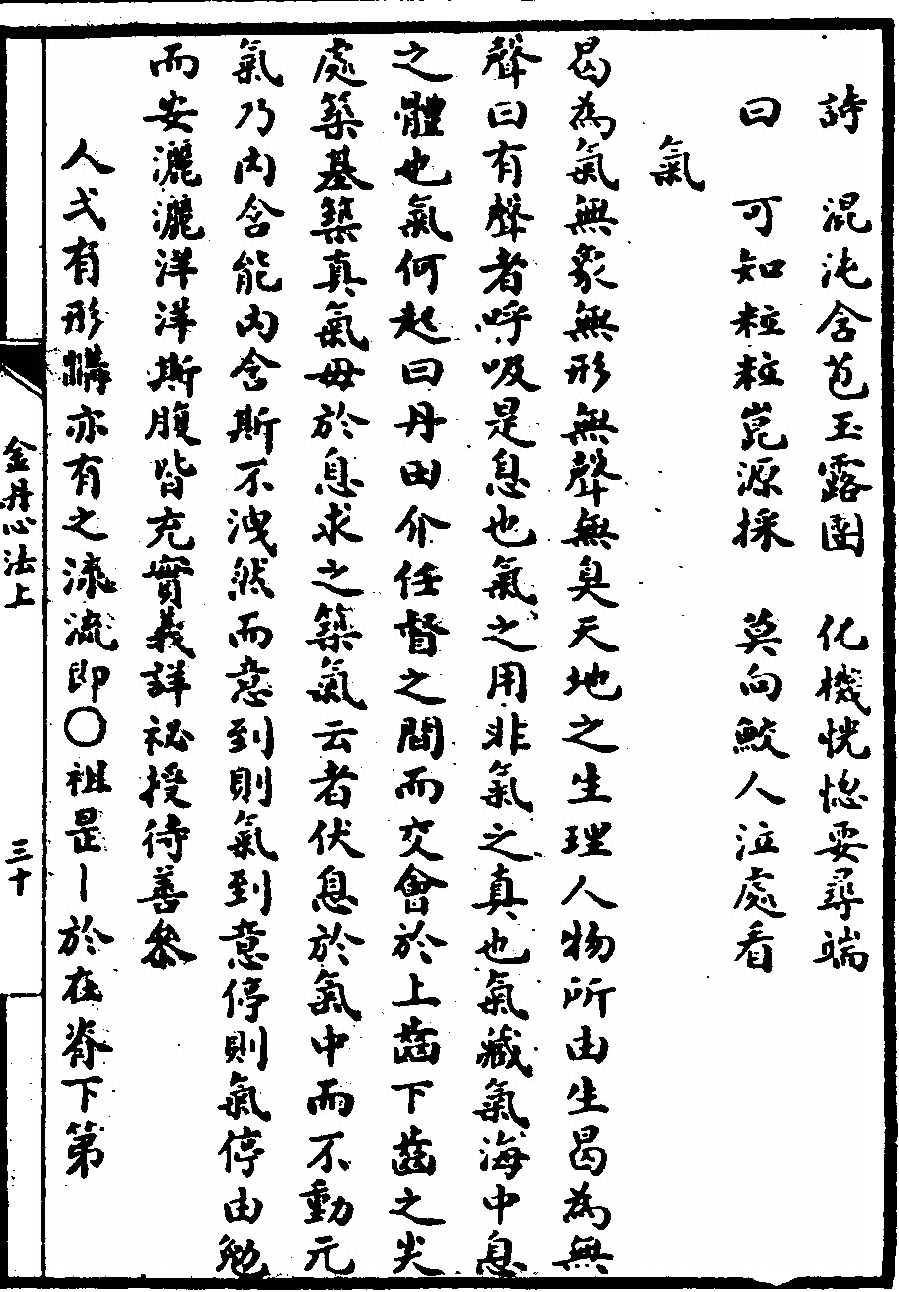 詩 混沌含苞玉露團 化機恍惚要尋端
曰 可知粒粒崑源採 莫向鮫人泣處看
氣
曷為氣無象無形無聲無臭天地之生理人物所由生曷為無
聲曰有聲者呼吸是息也氣之用非氣之真也氣藏氣海中息
之體也氣何起曰丹田介任督之間而交會於上齒下齒之尖
處築基築真氣毋於息求之築氣云者伏息於氣中而不動元
氣乃內含能內含斯不洩然而意到則氣到意停則氣停由勉
而安灑灑洋洋斯腹皆充實義詳祕授待善參
人弍有形購亦有之流流即〇祖是丨於在脊下第
金丹心法上
三十